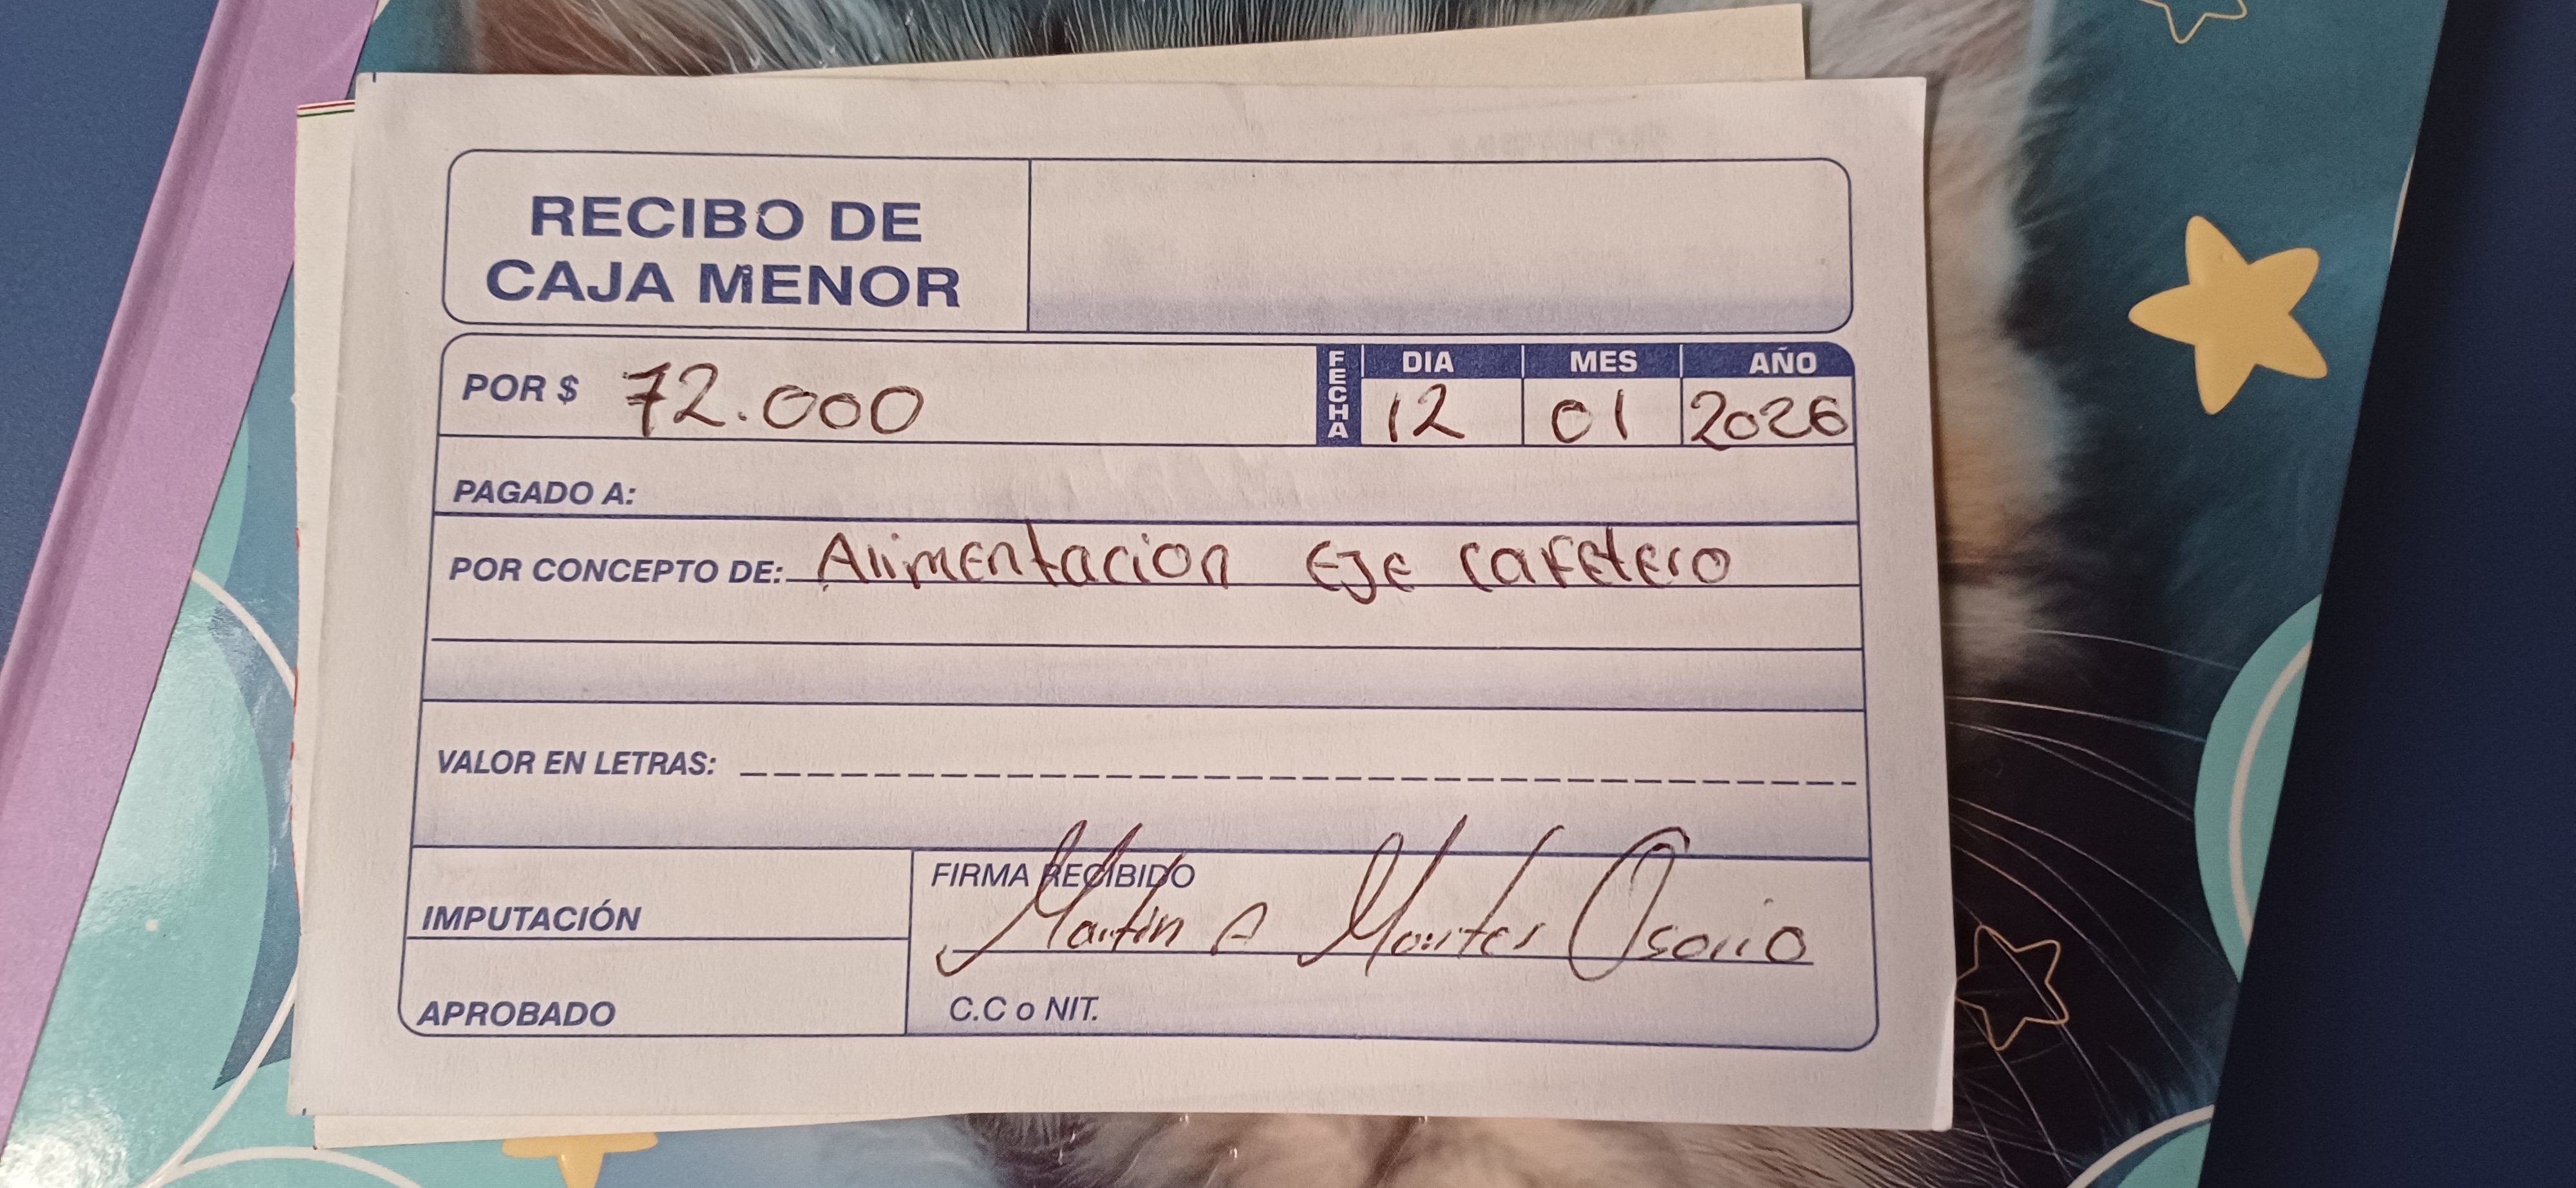 RECIBO DE
CAJA MENOR
POR $ 72.000
FECHA
DIA MES AÑO
12 01 2026
PAGADO A:
POR CONCEPTO DE: Alimentacion Eje cafetero
VALOR EN LETRAS:
IMPUTACIÓN
APROBADO
FIRMA RECIBIDO
Martin A Montes Osorio
C.C o NIT.